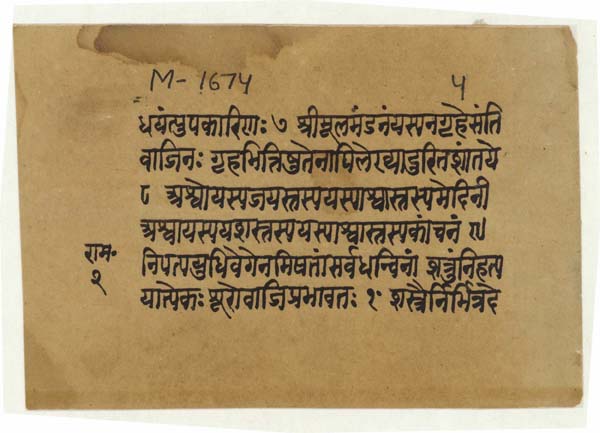 M- 1674
५
धयंत्युपकारिणः ७ श्रीमूलमंडनंयस्पनगृहेसंति
वाजिनः गृहभित्तिषुतेनापिलेख्यादुरितशांतये
८ अश्वोयस्पजयस्तस्पयस्पाश्वास्तस्पमेदिनी
अश्वायस्पयशस्तस्पयस्पाश्वास्तस्पकांचनं ९
राम॰
२
निपत्पयुधिवेगेनमिषतांसर्वधन्विनां शत्रुंनिहत्प
यात्येकः शूरोवाजिप्रभावतः १॰ शस्त्रैर्निर्भिन्नदे